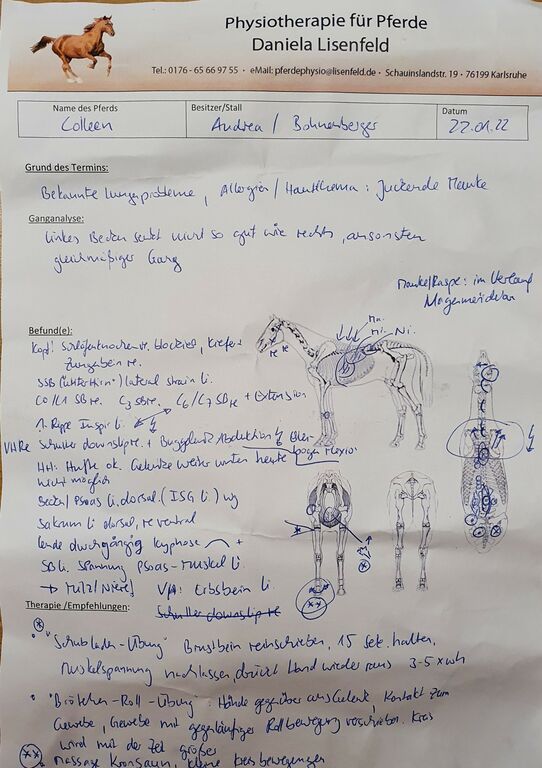 Physiotherapie für Pferde
Daniela Lisenfeld
Tel.: 0176 - 65 66 97 55 · eMail: pferdephysio@lisenfeld.de · Schauinslandstr. 19 · 76199 Karlsruhe
Name des Pferds
Besitzer/Stall
Datum
Colleen
Andrea / Bohnenberger
22.01.22
Grund des Termins:
Bekannte Lungenprobleme, Allergien / Hautthema: Juckende Mauke
Ganganalyse:
linkes Becken senkt nicht so gut wie rechts, ansonsten
gleichmäßiger Gang
Mauke/Raspe: im Verlauf
Magenmeridian
Befund(e):
Ma.
Mi. Ni.
re re
Kopf: Schläfenknochen re. blockiert, Kiefer +
Zungenbein re.
SSB lateral strain li.
C0/C1 SB re. C3 SB re. C6/C7 SB re + Extension
1. Rippe Inspir li.
VH Re Schulter downslip re. + Abduktion
HH: Hüfte ok. Gelenke weiter unten heute wegen Flexion
nicht möglich
Becken/Psoas li. dorsal. (ISG li)
Sakrum li dorsal, re ventral
Lende durchgängig Kyphose +
SB li. Spannung Psoas-Muskel li
→ Milz/Niere VH: Erbsbein li.
Therapie /Empfehlungen:
Schulter downslip re
• "Schubladen-Übung" Brustbein reinschieben, 15 sek. halten,
Muskelspannung nachlassen, drückt Hand wieder raus 3-5 x wh
• "Brötchen-Roll-Übung": Hände gegenüber ans Gelenk, Kontakt zum
Gewebe, Gewebe mit gegenläufiger Rollbewegung verschieben. Kreis
wird mit der Zeit größer
** Massage Kronsaum, kleine Kreisbewegungen